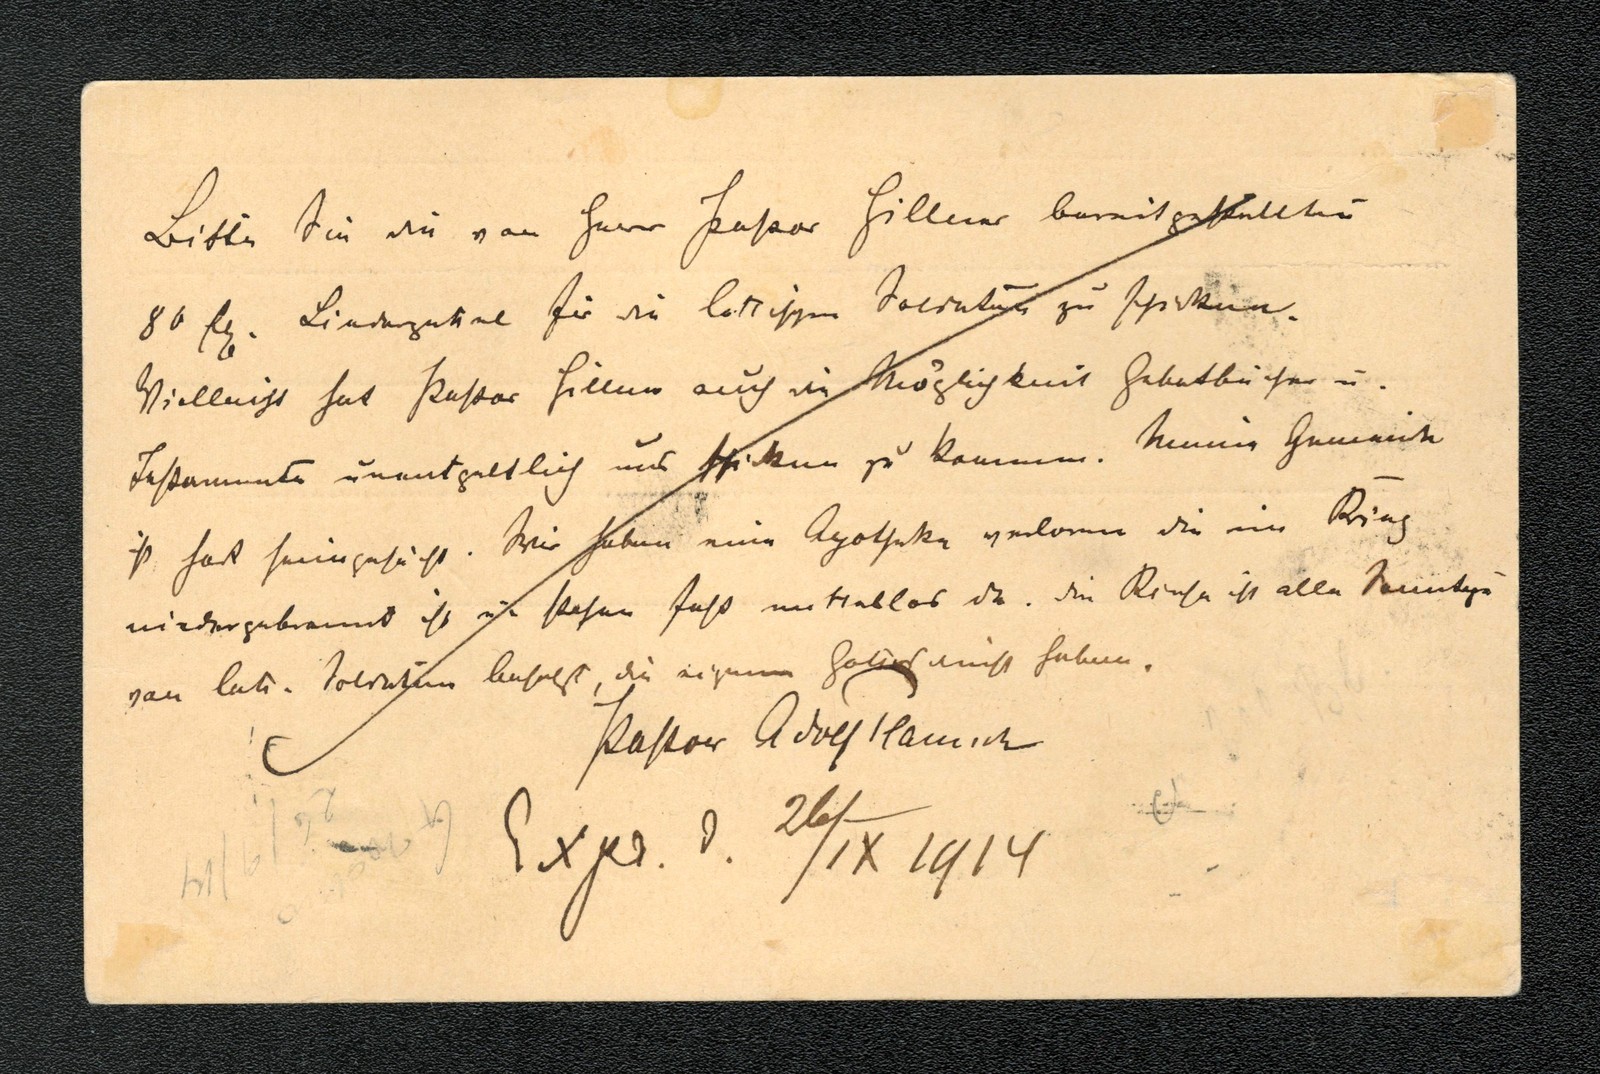 Bitte Sie die von Herrn Pastor Hillner bereitgestellten
80 Ex. Liederzettel für die lettischen Soldaten zu schicken.
Vielleicht hat Pastor Hillner auch die Möglichkeit Gebetbücher u.
Testamente unentgeltlich uns schicken zu können. Meine Gemeinde
ist hart heimgesucht. Wir haben eine Apotheke verloren die im Krieg
niedergebrannt ist u. stehen fast mittellos da. Die Kirche ist alle Sonntage
von lett. Soldaten besetzt, die eigenen Gottesdienst haben.
Pastor Adolf
Exped. d. 26/IX 1914